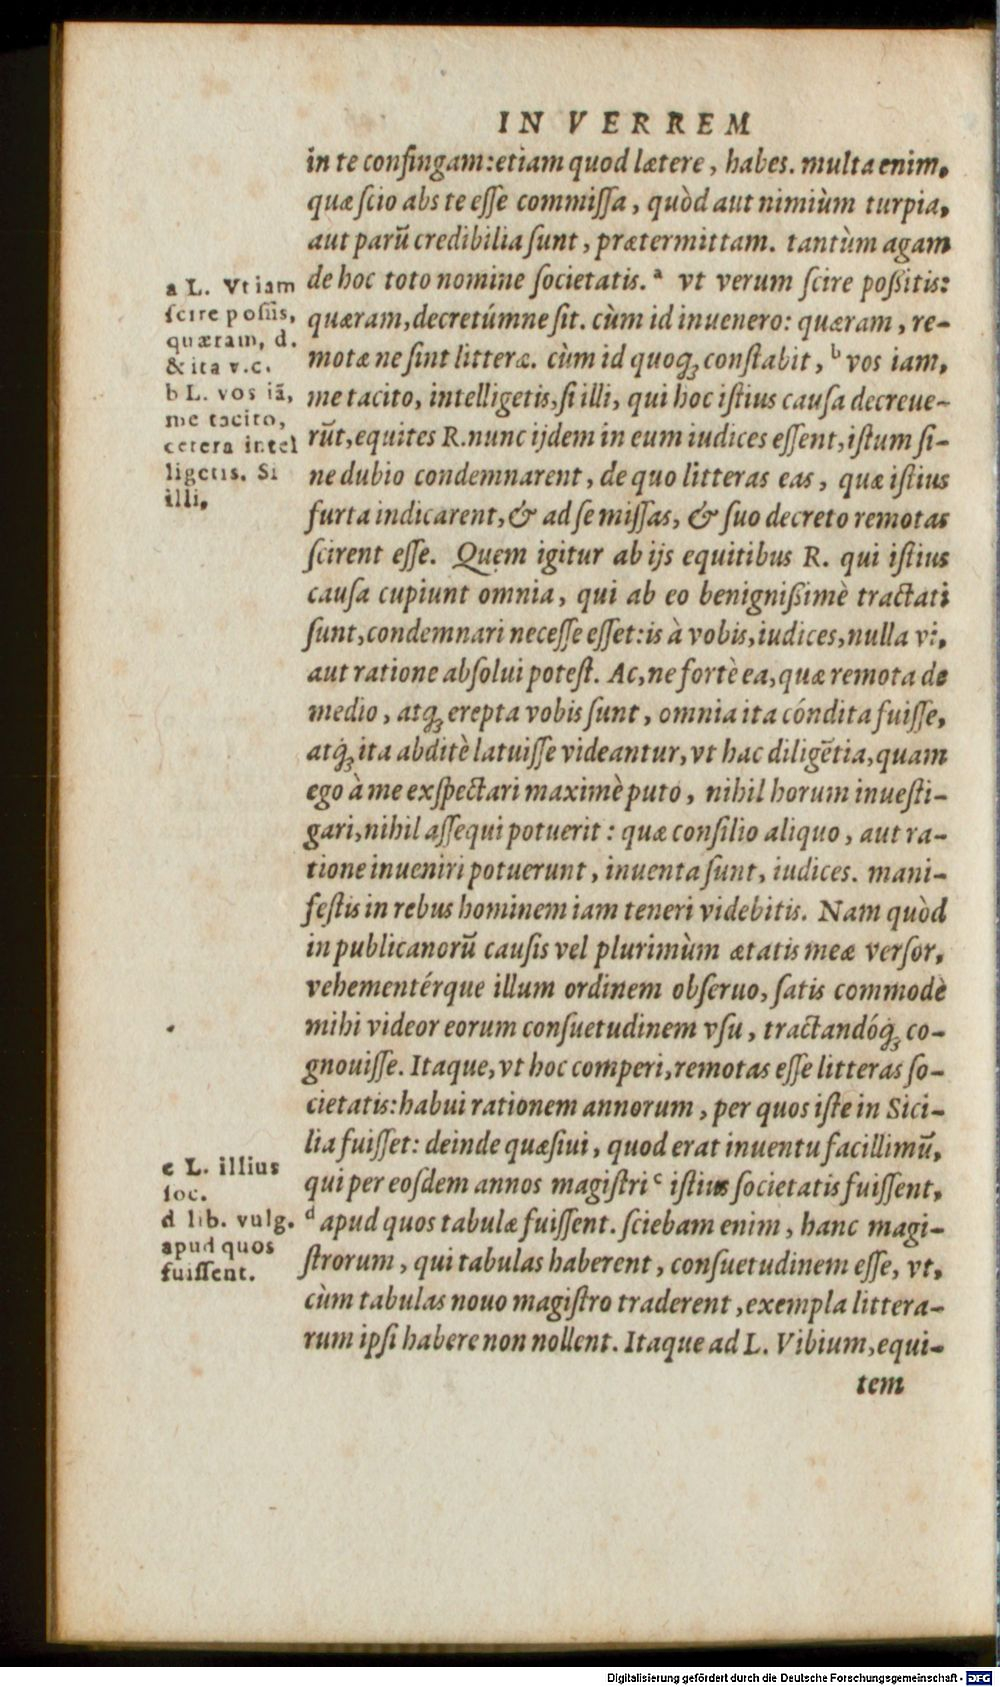 IN VERREM
in te confingam: etiam quod lætere, habes. multa enim,
quæ ſcio abs te eſſe commiſſa, quòd aut nimiùm turpia,
aut parũ credibilia ſunt, prætermittam. tantùm agam
de hoc toto nomine ſocietatis. ᵃ vt verum ſcire poßitis:
quæram, decretúmne ſit. cùm id inuenero: quæram, re-
motæ ne ſint litteræ. cùm id quoq; conſtabit, ᵇ vos iam,
me tacito, intelligetis, ſi illi, qui hoc iſtius cauſa decreue-
rũt, equites R. nunc ijdem in eum iudices eſſent, iſtum ſi-
ne dubio condemnarent, de quo litteras eas, quæ iſtius
furta indicarent, & ad ſe miſſas, & ſuo decreto remotas
ſcirent eſſe. Quem igitur ab ijs equitibus R. qui iſtius
cauſa cupiunt omnia, qui ab eo benignißimè tractati
ſunt, condemnari neceſſe eſſet: is à vobis, iudices, nulla vi,
aut ratione abſolui poteſt. Ac, ne fortè ea, quæ remota de
medio, atq; erepta vobis ſunt, omnia ita cóndita fuiſſe,
atq́; ita abditè latuiſſe videantur, vt hac diligẽtia, quam
ego à me exſpectari maximè puto, nihil horum inueſti-
gari, nihil aſſequi potuerit: quæ conſilio aliquo, aut ra-
tione inueniri potuerunt, inuenta ſunt, iudices. mani-
feſtis in rebus hominem iam teneri videbitis. Nam quòd
in publicanorũ cauſis vel plurimùm ætatis meæ verſor,
vehementérque illum ordinem obſeruo, ſatis commodè
mihi videor eorum conſuetudinem vſu, tractandóq́; co-
gnouiſſe. Itaque, vt hoc comperi, remotas eſſe litteras ſo-
cietatis: habui rationem annorum, per quos iſte in Sici-
lia fuiſſet: deinde quæſiui, quod erat inuentu facillimũ,
qui per eoſdem annos magiſtri ᶜ iſtius ſocietatis fuiſſent,
ᵈ apud quos tabulæ fuiſſent. ſciebam enim, hanc magi-
ſtrorum, qui tabulas haberent, conſuetudinem eſſe, vt,
cùm tabulas nouo magiſtro traderent, exempla littera-
rum ipſi habere non nollent. Itaque ad L. Vibium, equi-
tem
a L. Vt iam
ſcire poſſis,
quæram, d.
& ita v.c.
b L. vos iã,
me tacito,
cetera intel
ligetis. Si
illi,
c L. illius
ſoc.
d lib. vulg.
apud quos
fuiſſent.
Digitalisierung gefördert durch die Deutsche Forschungsgemeinschaft - DFG